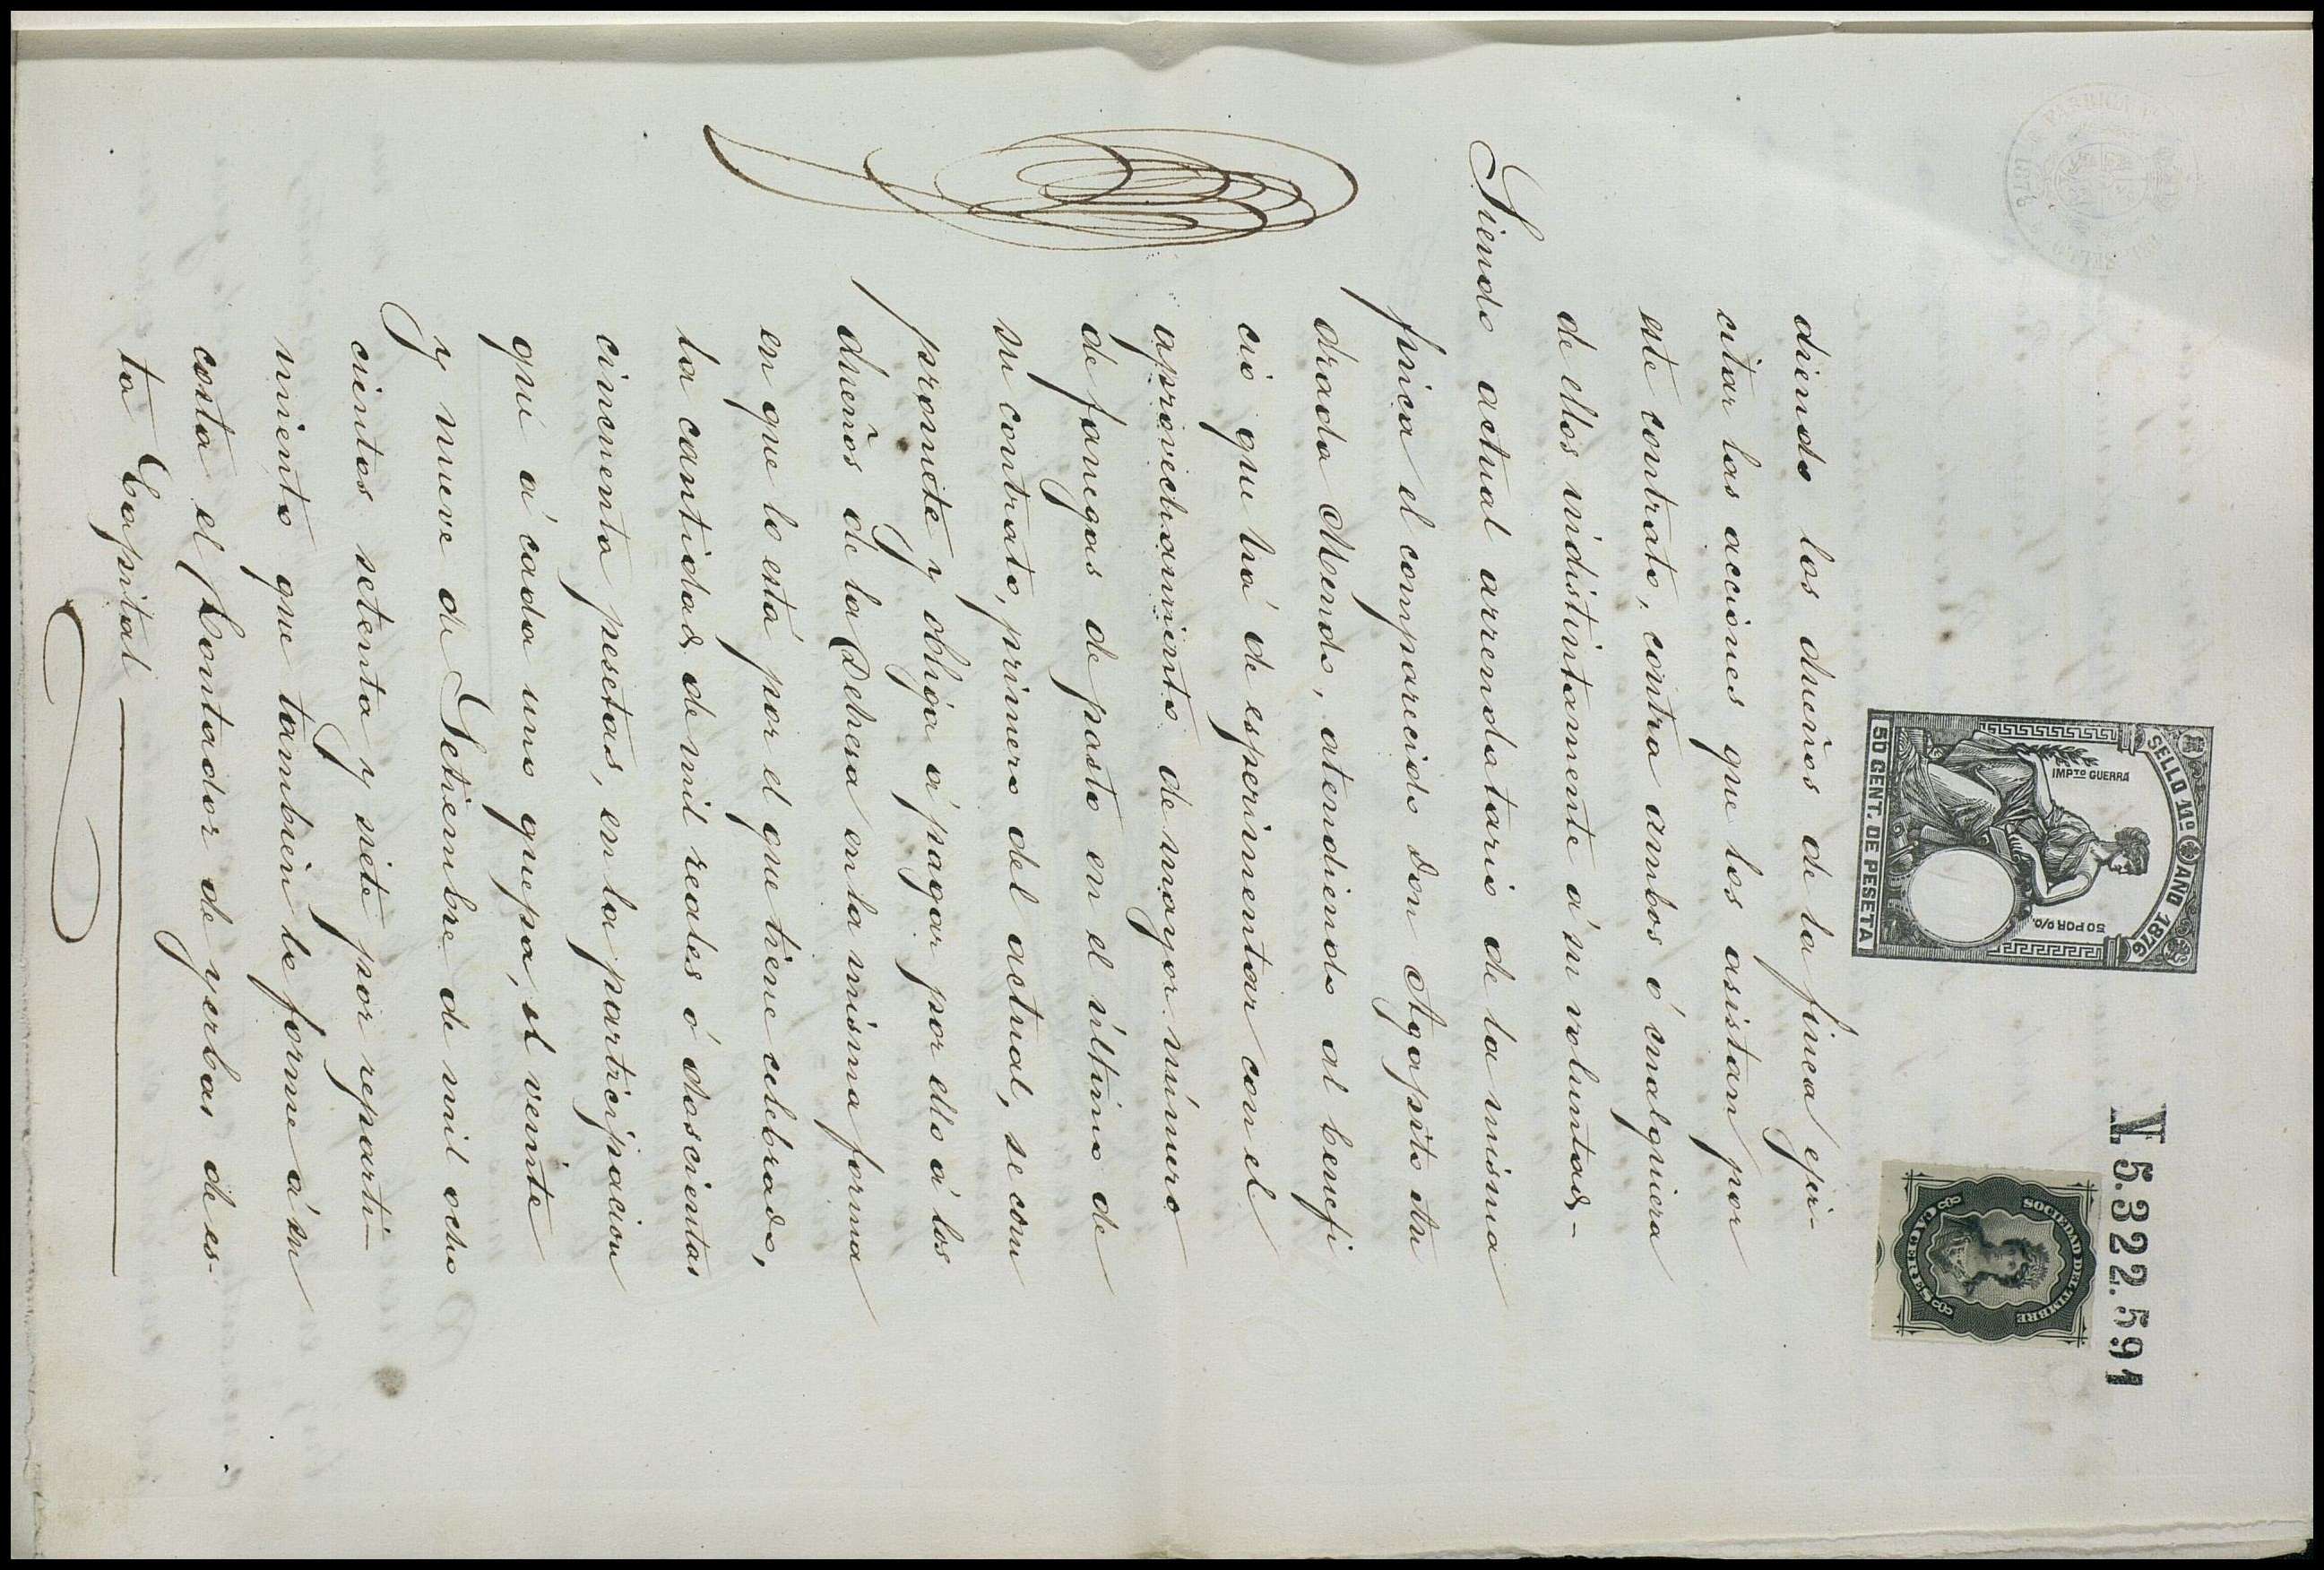 SELLO 11º AÑO 1876
IMPTO GUERRA
50 POR 0/0.
50 CENT. DE PESETA
N. 5.322.591
SOCIEDAD DEL TIMBRE
CACERES
diendo los dueños de la finca ejer-
citar las acciones que los asistan por
este contrato, contra ambos ó cualquiera
de ellos indistintamente á su voluntad.-
Siendo actual arrendatario de la misma
finca el comparecido don Agapito An
drada Mendo, atendiendo al benefi
cio que há de esperimentar con el
aprovechamiento de mayor número
de fanegas de pasto en el último de
su contrato, primero del actual, se com
promete y obliga á pagar por ello á los
dueños de la Dehesa en la misma forma
en que lo está por el que tiene celebrado,
la cantidad de mil reales ó doscientas
cincuenta pesetas, en la participacion
que á cada uno quepa, el veinte
y nueve de Setiembre de mil ocho
cientos setenta y siete por reparti-
miento que tambien le forme á su
costa el Contador de yerbas de es-
ta Capital